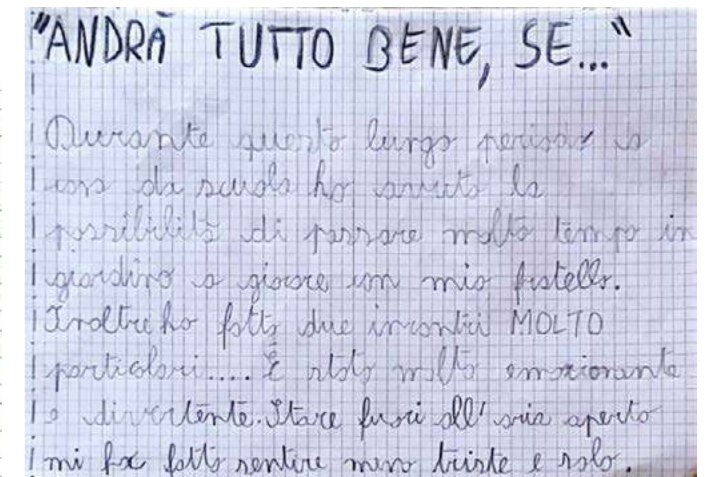 "ANDRÀ TUTTO BENE, SE..."
Durante questo lungo periodo a
casa da scuola ho avuto la
possibilità di passare molto tempo in
giardino a giocare con mio fratello.
Inoltre ho fatto due incontri MOLTO
particolari.... È stato molto emozionante
e divertente. Stare fuori all'aria aperta
mi ha fatto sentire meno triste e solo.